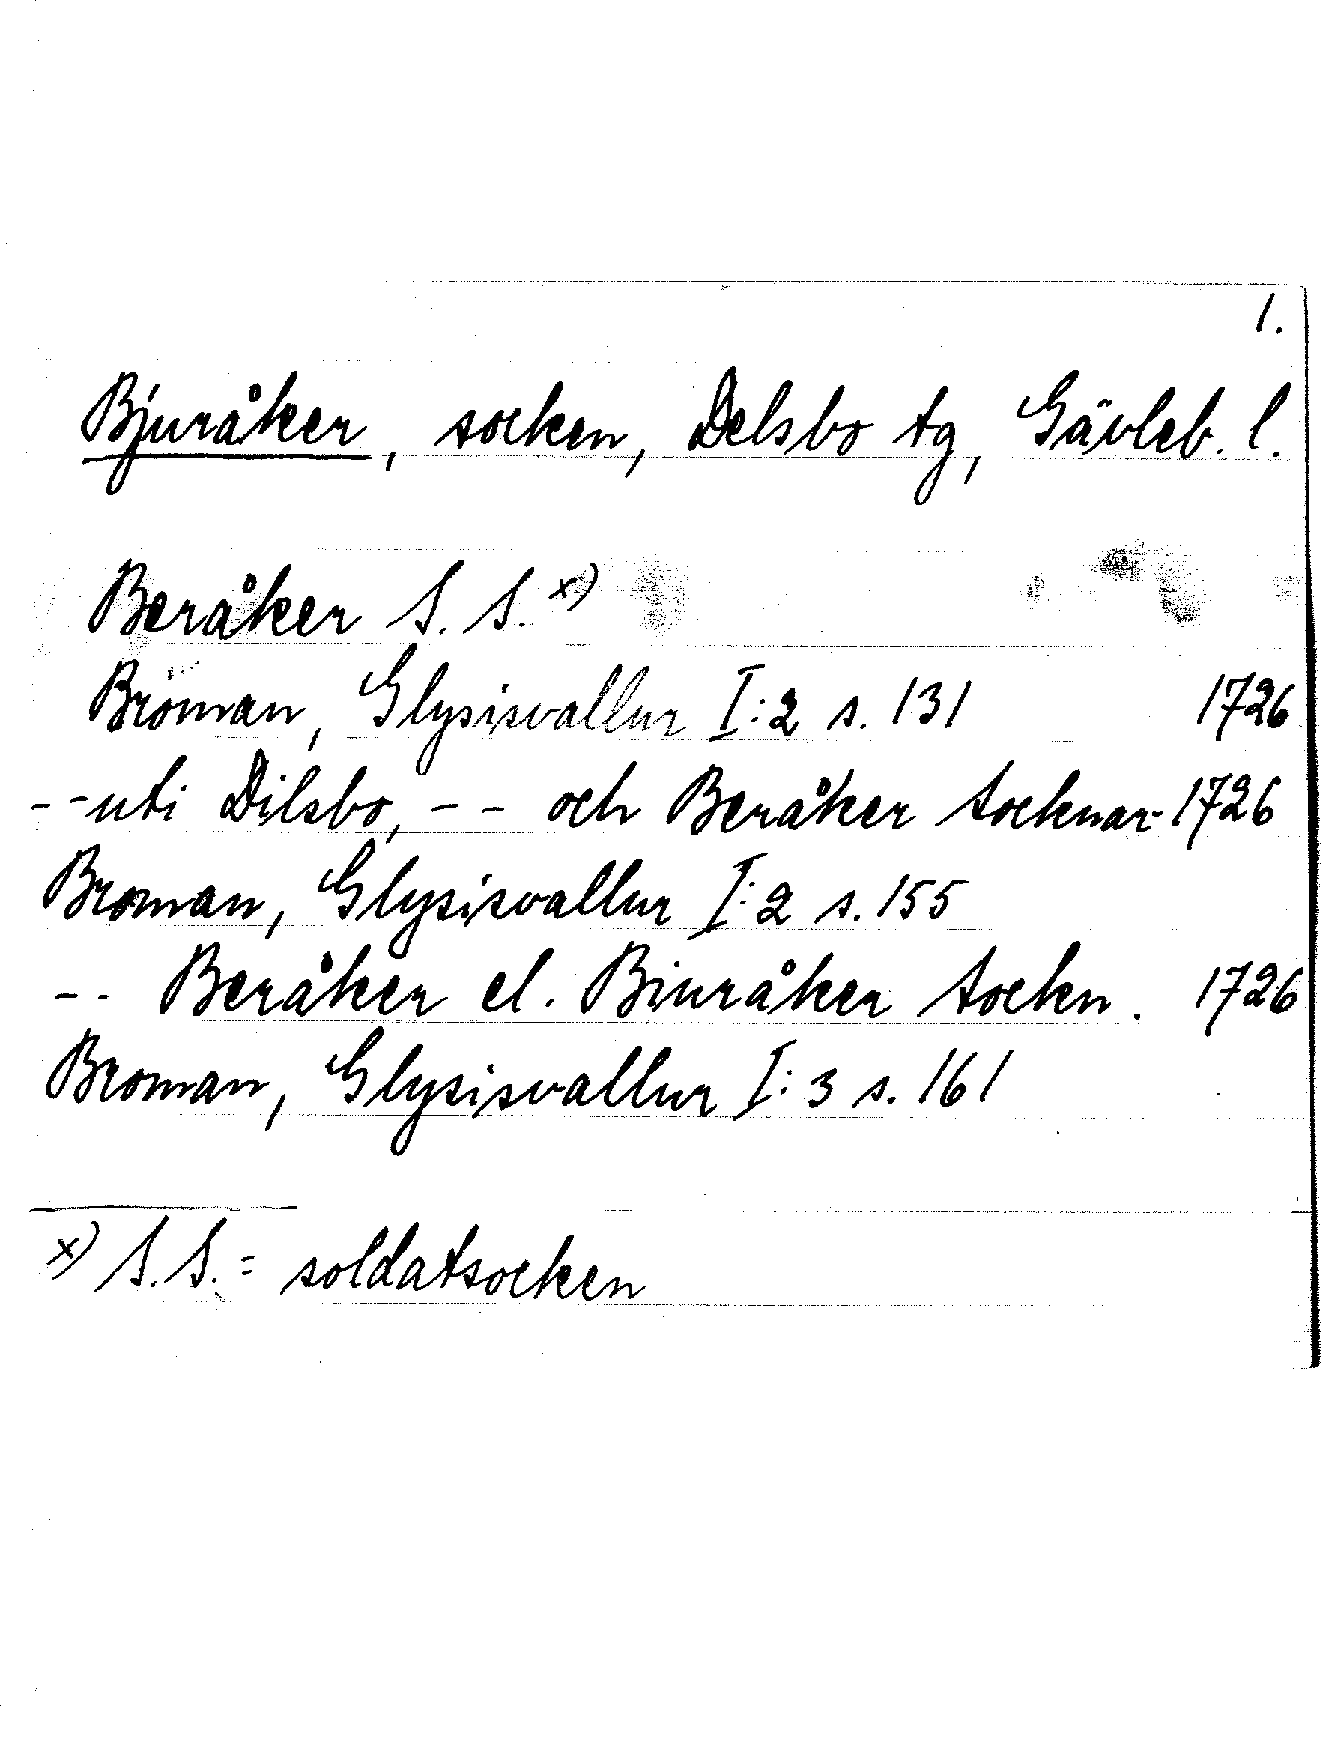 1.
Bjuråker, socken, Delsbo tg, Gävleb. l.
Beråker S. S. x)
Broman, Glysisvallur I:2 s. 131 1726
-- uti Dilsbo, -- och Beråker Socknar 1726
Broman, Glysisvallur I:2 s. 155
-- Beråker el. Biuråker Sockn. 1726
Broman, Glysisvallur I:3 s. 161
x) S.S. = soldatsocken